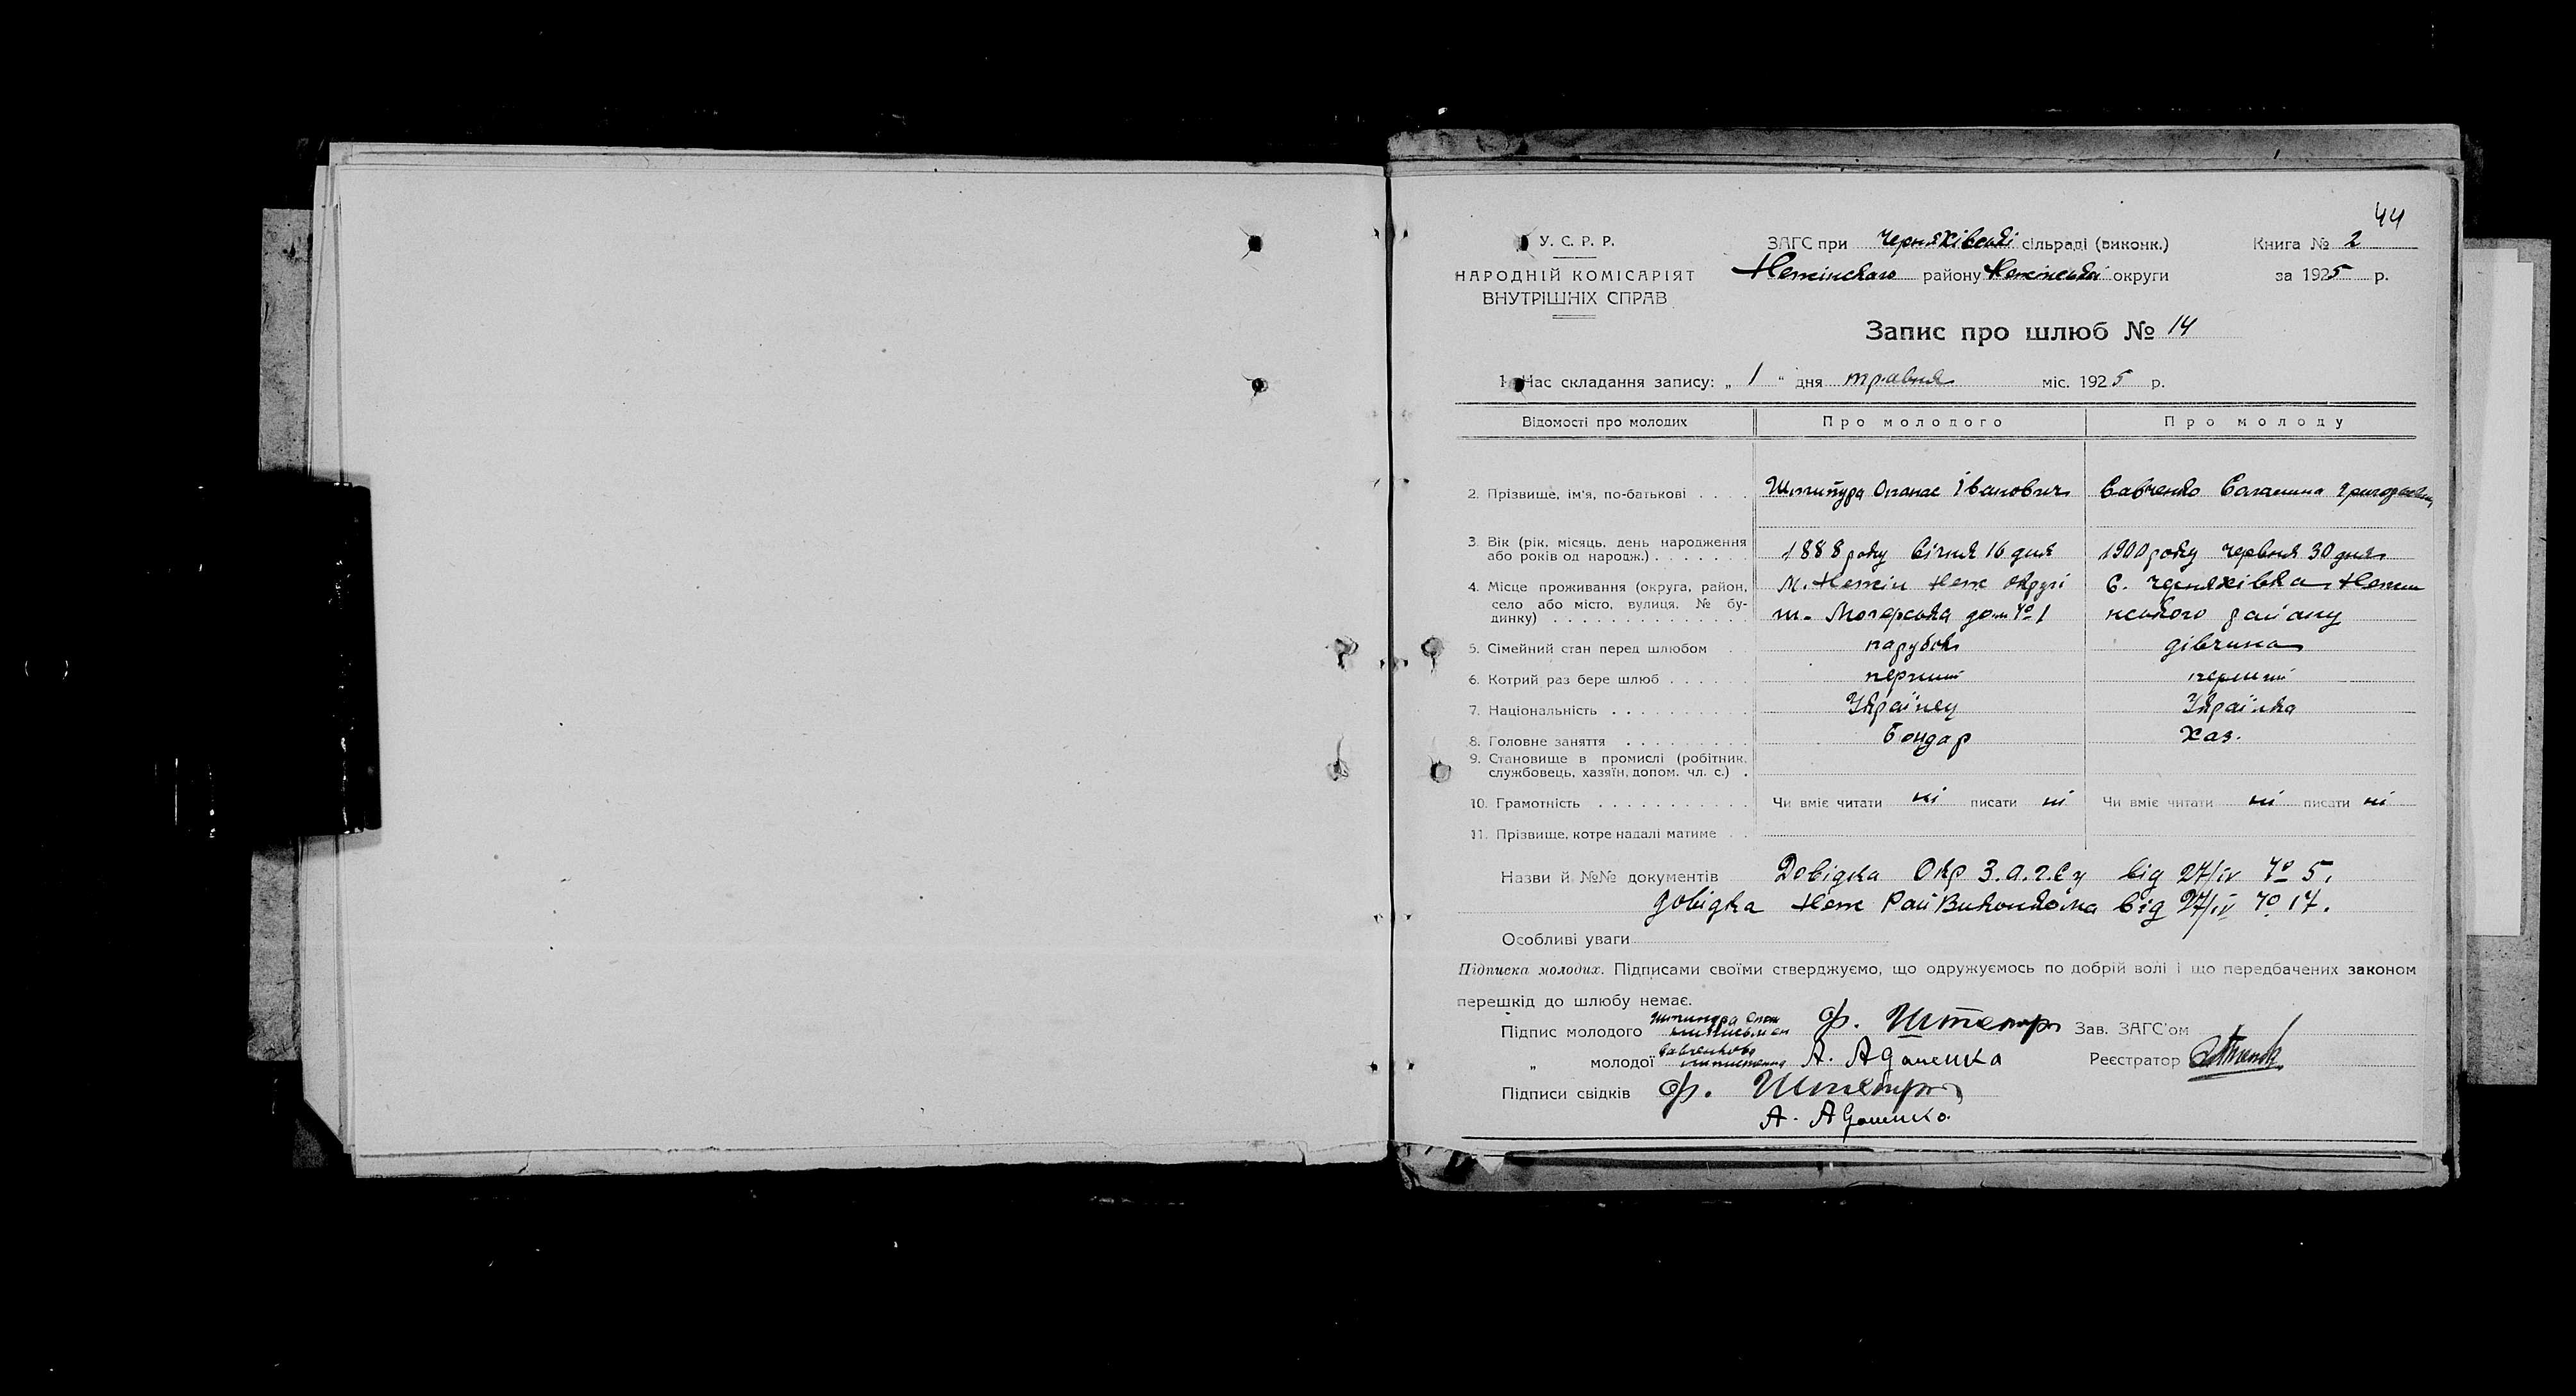 44
У. С. Р. Р.
НАРОДНІЙ КОМІСАРІЯТ
ВНУТРІШНІХ СПРАВ
ЗАГС при Черняхівскі сільраді (виконк.)
Неженського району Неженської округи
Книга № 2
за 1925 р.
Запис про шлюб № 14
1. Час складання запису: „ 1 “ дня травня міс. 1925 р.
Відомості про молодих Про молодого Про молоду
2. Прізвище, ім'я, по-батькові . . . . Опанас Іванович Савченко Григорьевна
3. Вік (рік, місяць, день народження
або років од народж.) . . . . . . 1888 року Січня 16 дня 1900 року червня 30 дня
4. Місце проживання (округа, район,
село або місто, вулиця, № бу-
динку) . . . . . . . . . . . . . .
М. Нежін Неж округі С. Черняхівка Нежин
дом № 1 нського району
5. Сімейний стан перед шлюбом . парубок дівчина
6. Котрий раз бере шлюб . . . . . . перший перший
7. Національність . . . . . . . . . . Українец Українка
8. Головне заняття . . . . . . . . . Бондар Хаз.
9. Становище в промислі (робітник,
службовець, хазяїн, допом. чл. с.) .
10. Грамотність . . . . . . . . . . . Чи вміє читати ні писати ні Чи вміє читати ні писати ні
11. Прізвище, котре надалі матиме . .
Назви й №№ документів Довідка Окр З.а.г.су від 27/IV № 5.
довідка Неж РайВиконкома від 27/IV № 17.
Особливі уваги
Підписка молодих. Підписами своїми стверджуємо, що одружуємось по добрій волі і що передбачених законом
перешкід до шлюбу немає.
Підпис молодого Ф. Зав. ЗАГС'ом
„ молодої А. Реєстратор
Підписи свідків Ф.
А.